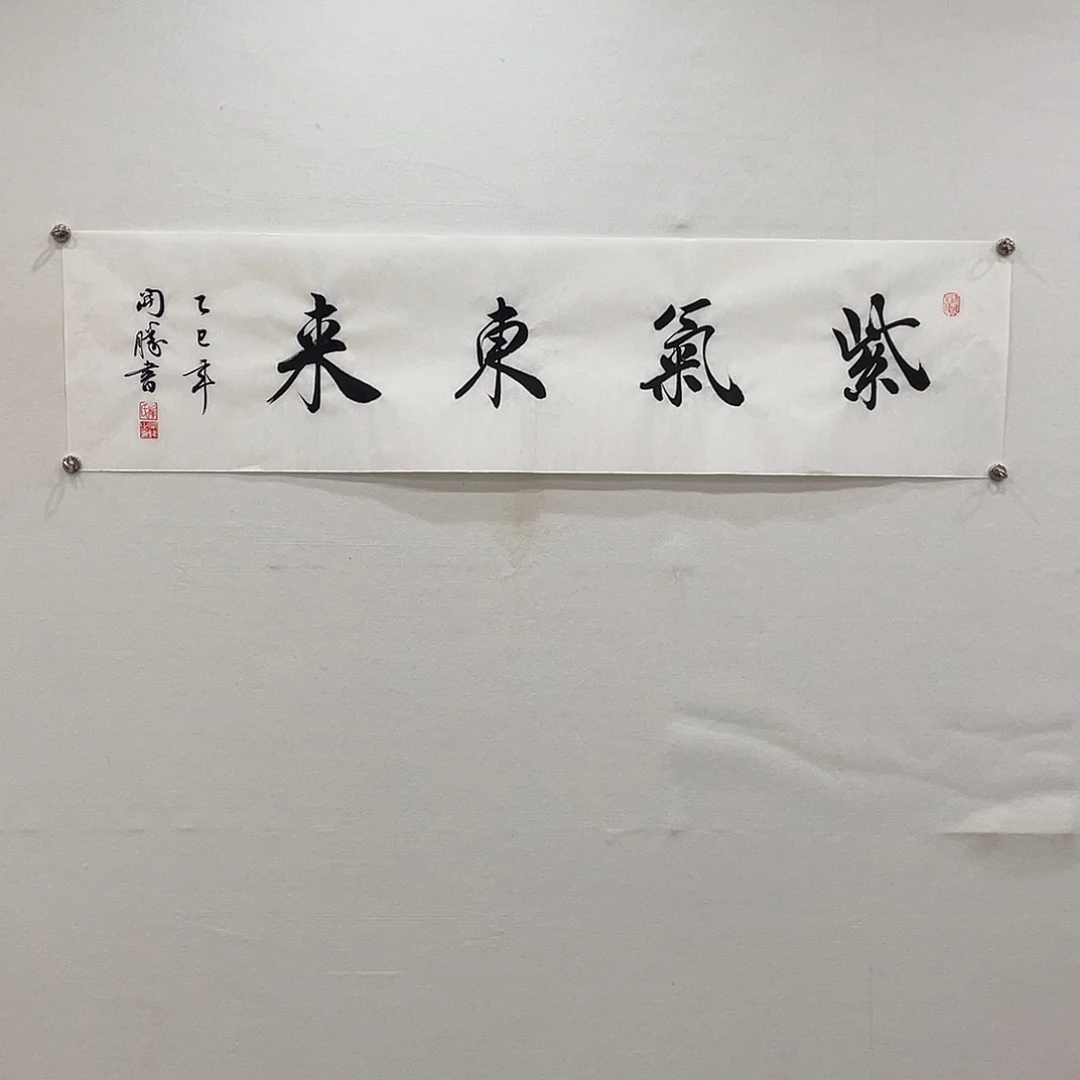 紫氣東来
乙巳年
開勝書